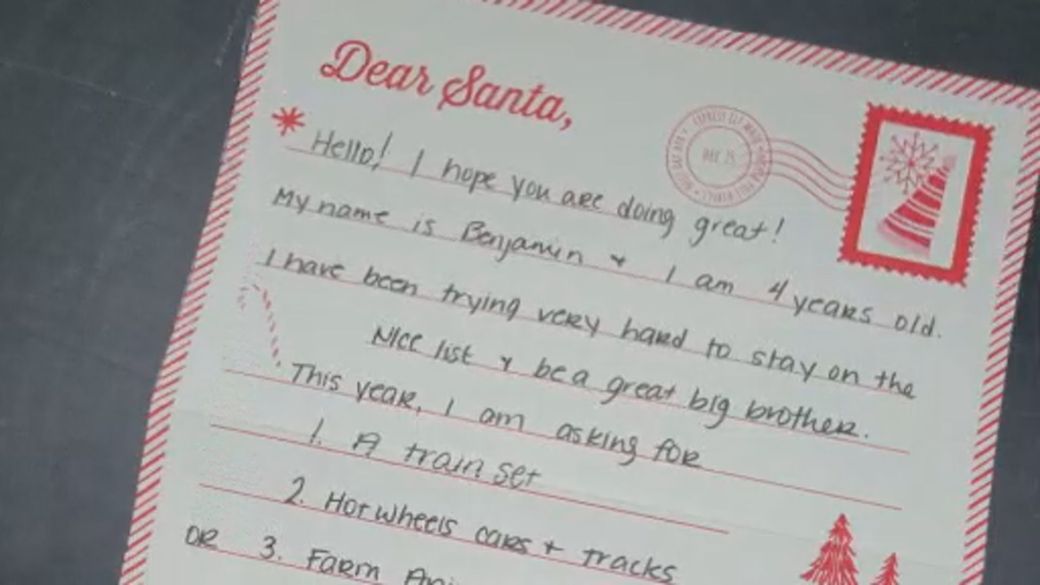 Dear Santa,
Hello! I hope you are doing great!
My name is Benjamin & I am 4 years old.
I have been trying very hard to stay on the
Nice list & be a great big brother.
This year, I am asking for
1. A train set
2. Hot wheels cars + tracks
OR 3. Farm
DEC 25